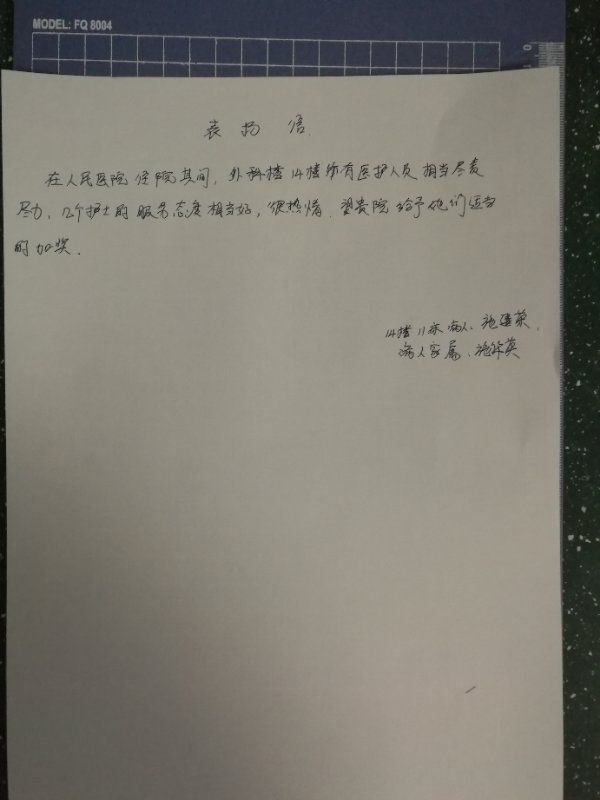 MODEL: FQ 8004
表扬信.
在人民医院住院其间, 外科楼14楼所有医护人员相当尽责
尽力, 几个护士的服务态度相当好, 很热情. 望贵院给予她们适当
的加奖.
14楼11床病人. 施建英.
病人家属、施